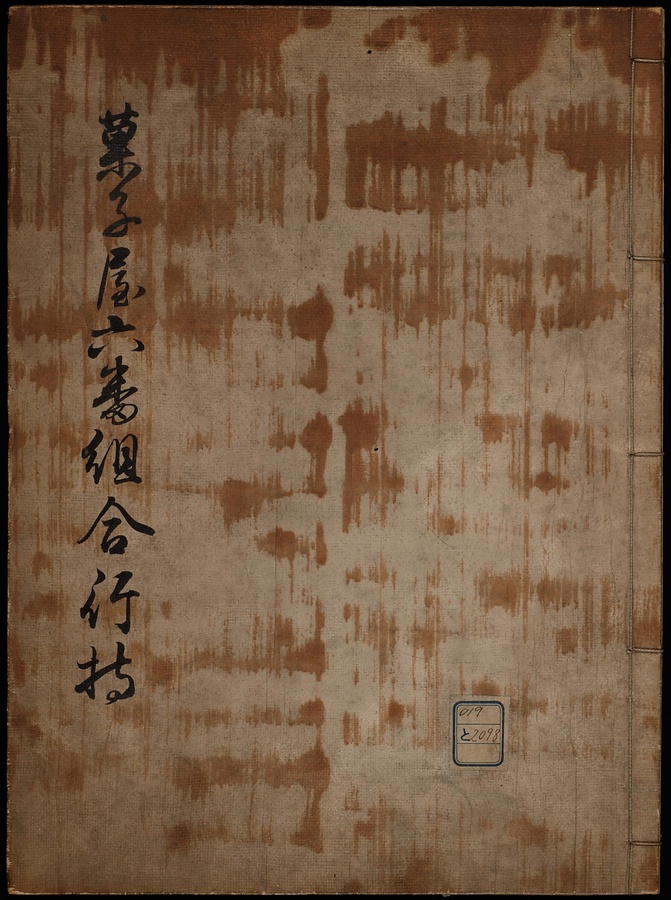 菓子屋六番組合行持
019
と2098